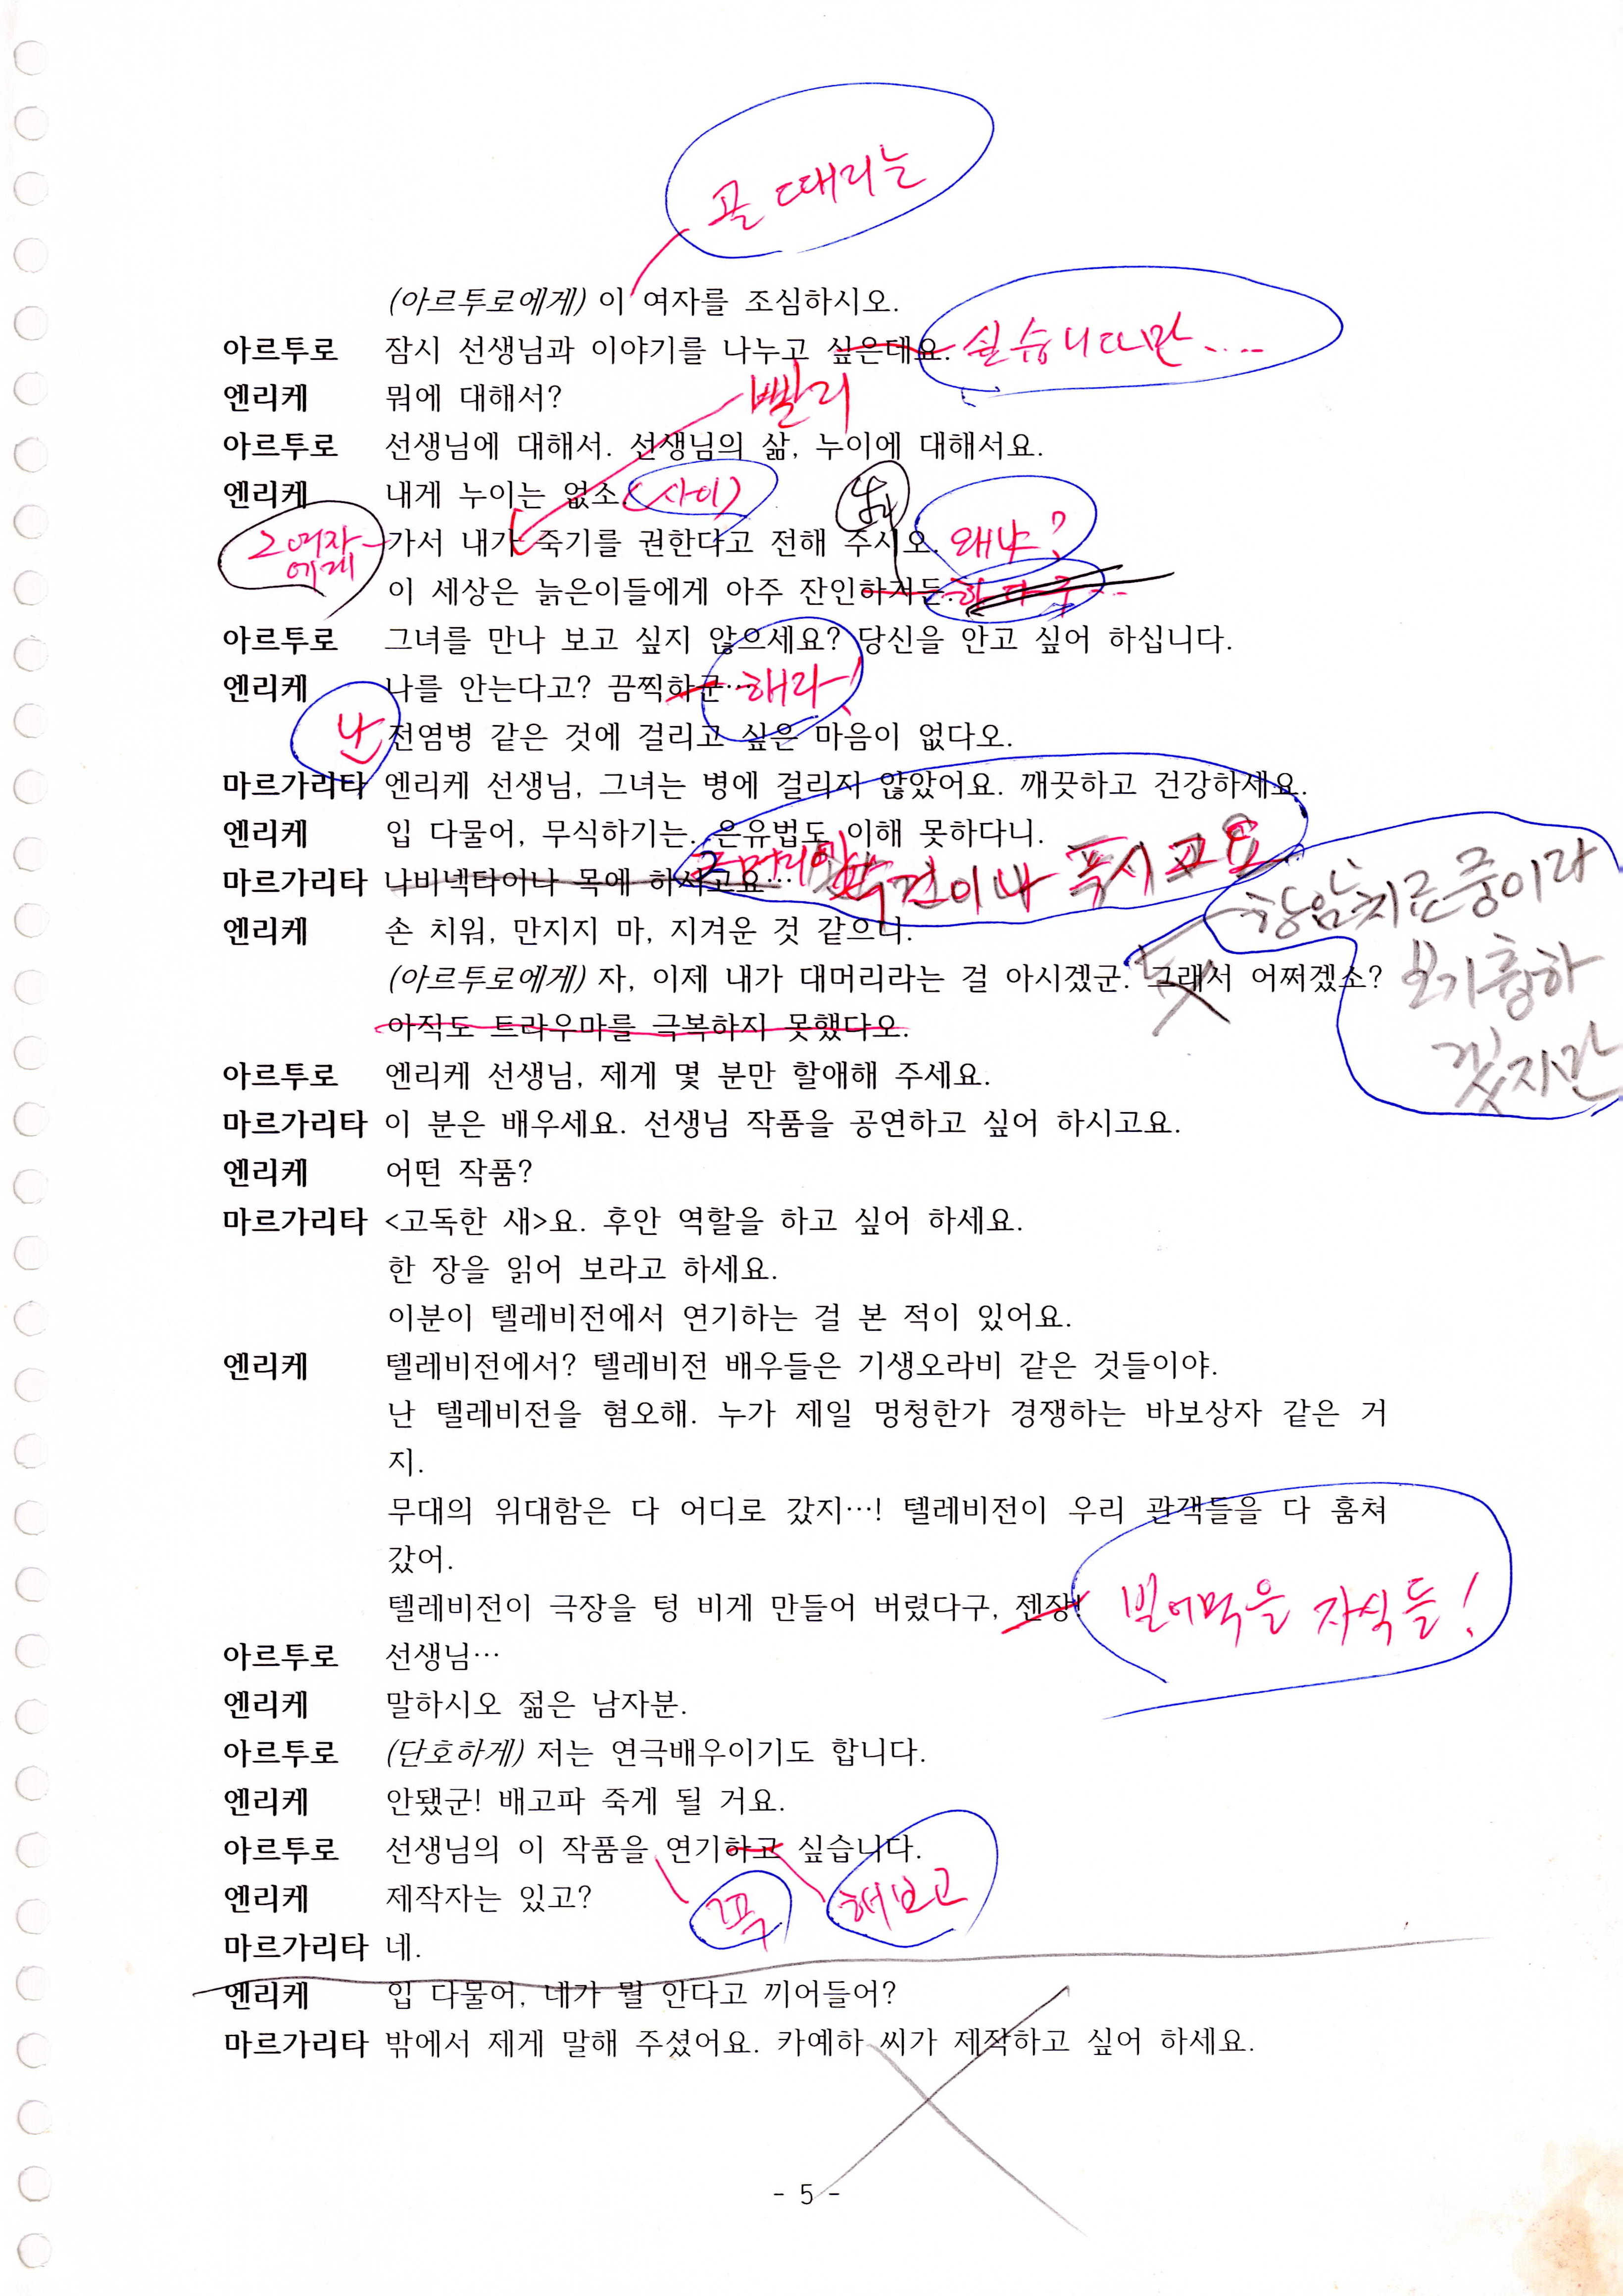 골 때리는
(아르투로에게) 이 여자를 조심하시오.
아르투로 잠시 선생님과 이야기를 나누고 싶은데요. 싶습니다만....
엔리케 뭐에 대해서?
빨리
아르투로 선생님에 대해서. 선생님의 삶, 누이에 대해서요.
엔리케 내게 누이는 없소. (사이)
그 여자에게 가서 내가 죽기를 권한다고 전해 주시오. 왜냐?
이 세상은 늙은이들에게 아주 잔인하거든. 하다구...
아르투로 그녀를 만나 보고 싶지 않으세요? 당신을 안고 싶어 하십니다.
엔리케 나를 안는다고? 끔찍하군… 해라!
난 전염병 같은 것에 걸리고 싶은 마음이 없다오.
마르가리타 엔리케 선생님, 그녀는 병에 걸리지 않았어요. 깨끗하고 건강하세요.
엔리케 입 다물어, 무식하기는. 은유법도 이해 못하다니.
마르가리타 나비넥타이나 목에 하시고요… 수건이나 푹시고요
항암치료중이라
엔리케 손 치워, 만지지 마, 지겨운 것 같으니.
(아르투로에게) 자, 이제 내가 대머리라는 걸 아시겠군. 그래서 어쩌겠소?
보기흉하
겠지만
아직도 트라우마를 극복하지 못했다오.
아르투로 엔리케 선생님, 제게 몇 분만 할애해 주세요.
마르가리타 이 분은 배우세요. 선생님 작품을 공연하고 싶어 하시고요.
엔리케 어떤 작품?
마르가리타 <고독한 새>요. 후안 역할을 하고 싶어 하세요.
한 장을 읽어 보라고 하세요.
이분이 텔레비전에서 연기하는 걸 본 적이 있어요.
엔리케 텔레비전에서? 텔레비전 배우들은 기생오라비 같은 것들이야.
난 텔레비전을 혐오해. 누가 제일 멍청한가 경쟁하는 바보상자 같은 거
지.
무대의 위대함은 다 어디로 갔지…! 텔레비전이 우리 관객들을 다 훔쳐
갔어.
텔레비전이 극장을 텅 비게 만들어 버렸다구, 젠장! 빌어먹을 자식들!
아르투로 선생님…
엔리케 말하시오 젊은 남자분.
아르투로 (단호하게) 저는 연극배우이기도 합니다.
엔리케 안됐군! 배고파 죽게 될 거요.
아르투로 선생님의 이 작품을 연기하고 싶습니다.
엔리케 제작자는 있고? 꼭 해보고
마르가리타 네.
엔리케 입 다물어, 네가 뭘 안다고 끼어들어?
마르가리타 밖에서 제게 말해 주셨어요. 카예하 씨가 제작하고 싶어 하세요.
- 5 -